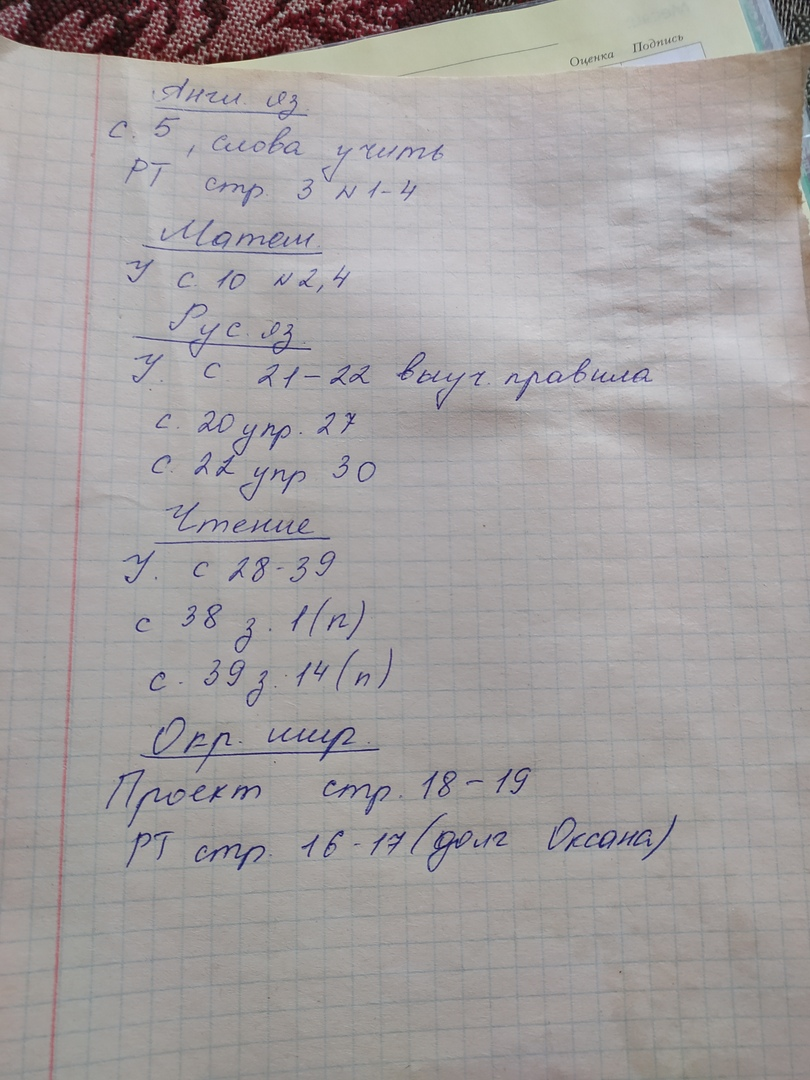 Оценка Подпись
Англ. яз.
с. 5, слова учить
РТ стр. 3 №1-4
Матем.
У с. 10 №2,4
Рус. яз.
У. с 21-22 выуч. правила
с. 20 упр. 27
с. 22 упр 30
Чтение
У. с 28-39
с 38 з. 1(п)
с. 39 з. 14(п)
Окр. мир.
Проект стр. 18-19
РТ стр. 16-17 (долг Оксана)